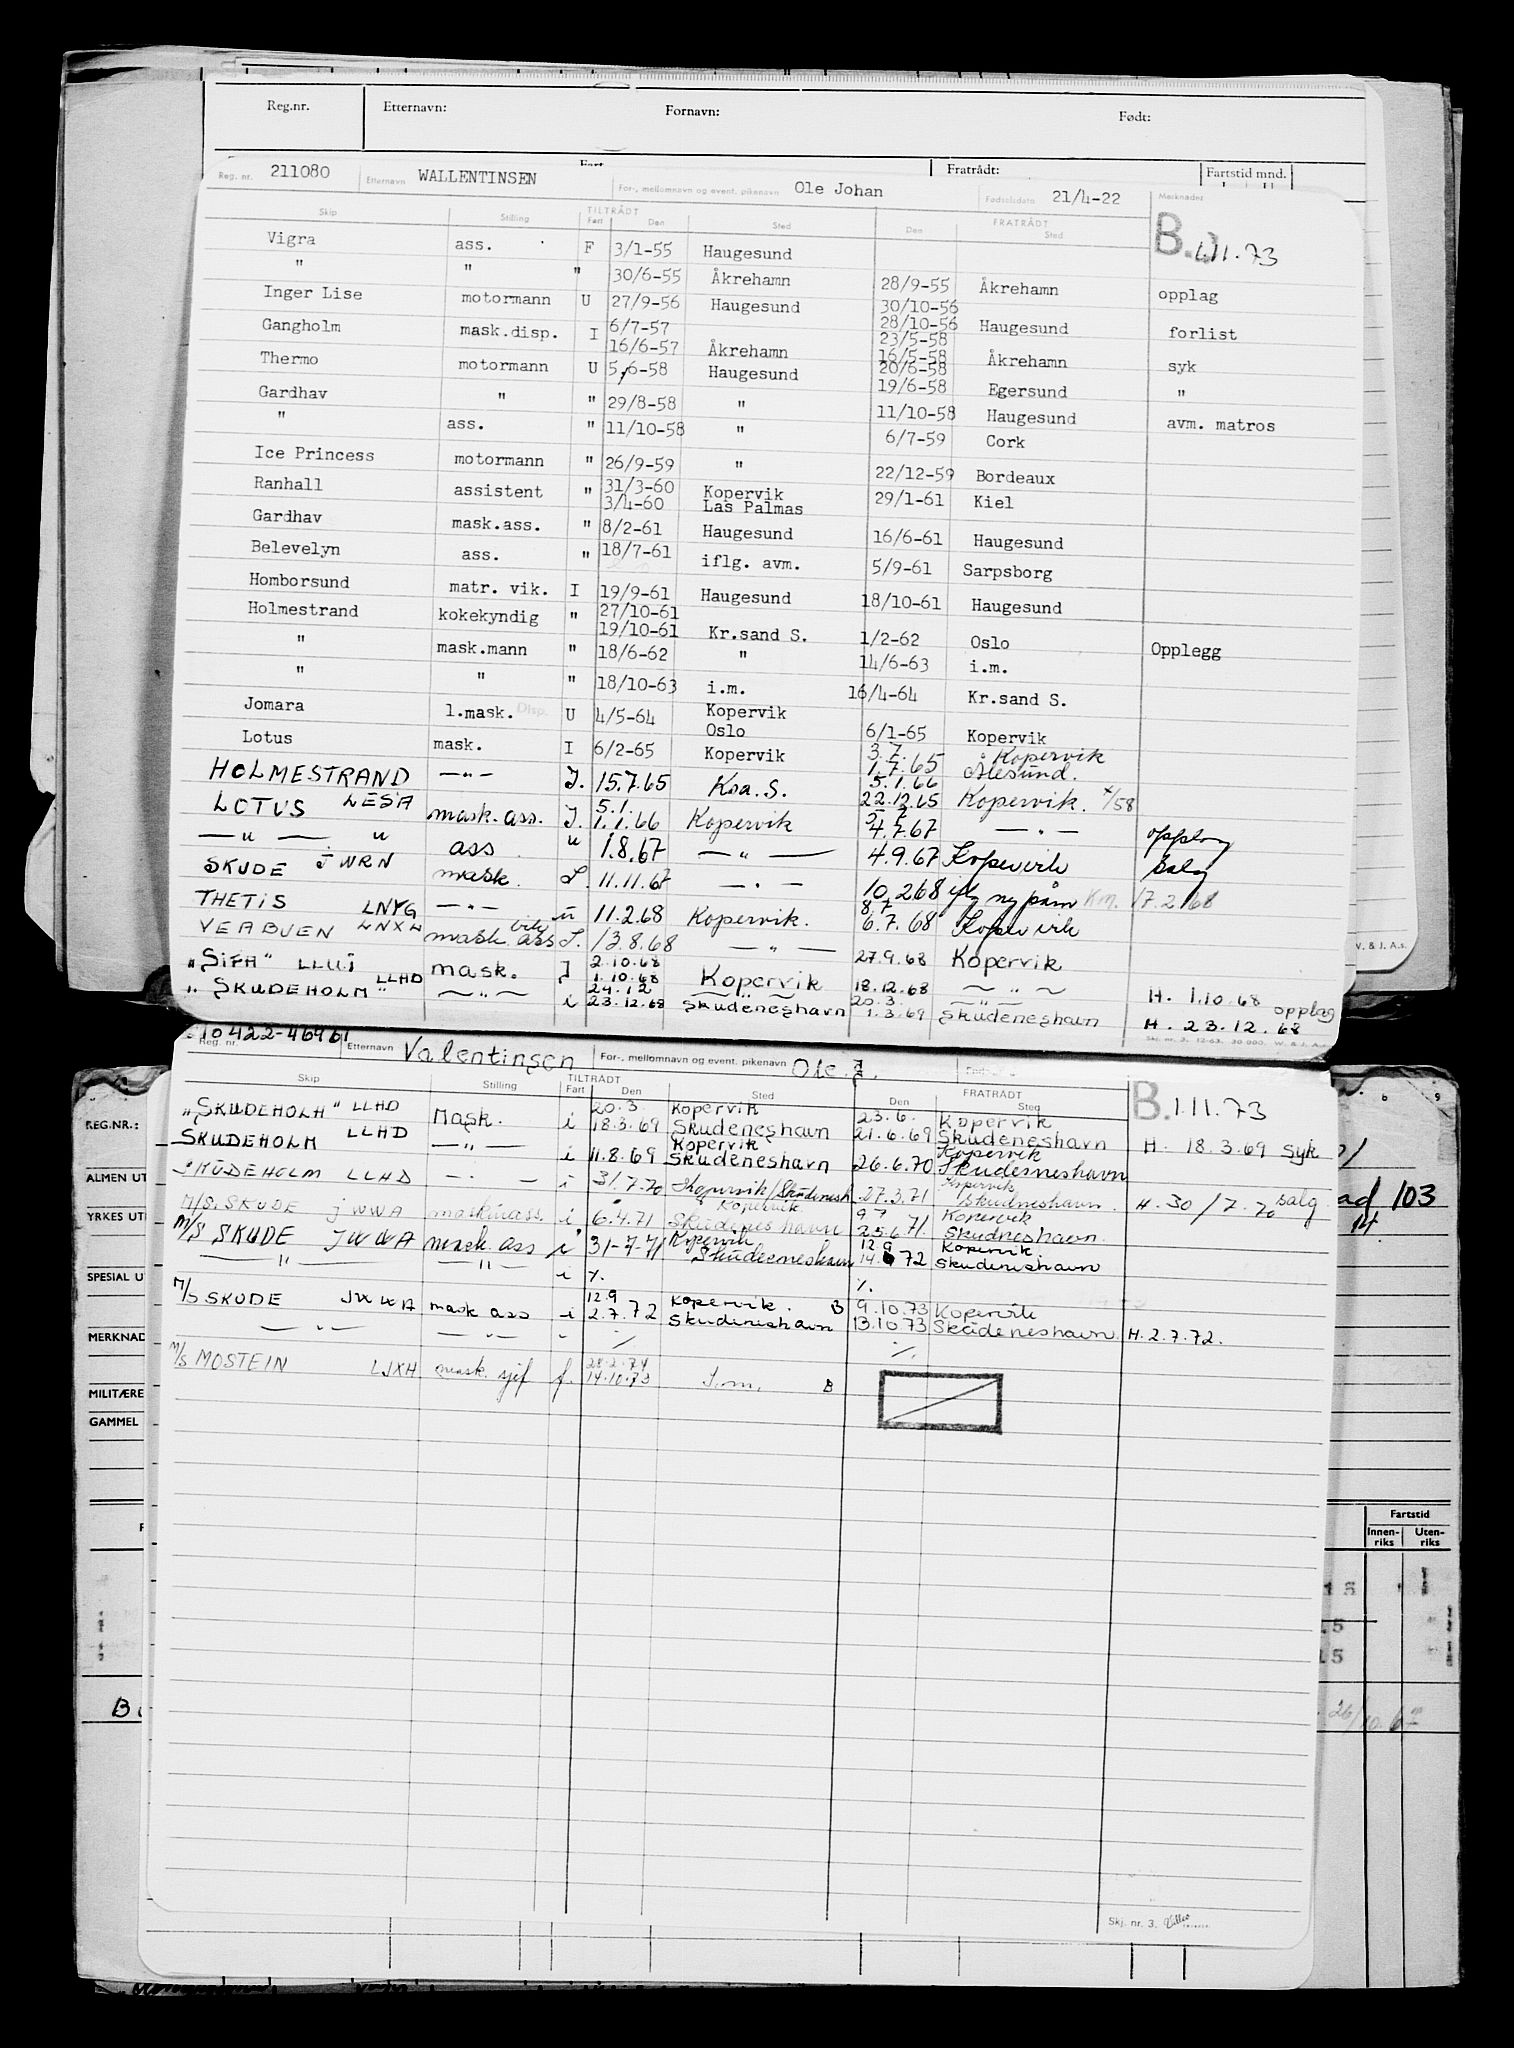 Reg.nr. Etternavn: Fornavn: Født:
Fratrådt: Fartstid mnd.
Reg. nr. 211080 Etternavn WALLENTINSEN For-, mellomnavn og event. pikenavn Ole Johan Fødselsdato 21/4-22 Merknader
Skip Stilling TILTRÅDT Fart Den Sted Den FRATRÅDT Sted B. 1.11.73
Vigra ass. F 3/1-55 Haugesund
" " " 30/6-55 Åkrehamn 28/9-55 Åkrehamn opplag
Inger Lise motormann U 27/9-56 Haugesund 30/10-56
28/10-56 Haugesund forlist
Gangholm mask.disp. I 6/7-57 23/5-58
16/6-57 Åkrehamn 16/5-58 Åkrehamn syk
Thermo motormann U 5/6-58 Haugesund 20/6-58
19/6-58 Egersund "
Gardhav " " 29/8-58 " 11/10-58 Haugesund avm. matros
" ass. " 11/10-58 " 6/7-59 Cork
Ice Princess motormann " 26/9-59 " 22/12-59 Bordeaux
Ranhall assistent " 31/3-60 Kopervik 29/1-61 Kiel
3/4-60 Las Palmas
Gardhav mask.ass. " 8/2-61 Haugesund 16/6-61 Haugesund
Belevelyn ass. " 18/7-61 iflg. avm. 5/9-61 Sarpsborg
Homborsund matr. vik. I 19/9-61 Haugesund 18/10-61 Haugesund
Holmestrand kokekyndig " 27/10-61
19/10-61 Kr.sand S. 1/2-62 Oslo Opplegg
" mask.mann " 18/6-62 " 14/6-63 i.m.
" " " 18/10-63 i.m. 16/4-64 Kr.sand S.
Jomara 1.mask. Disp. U 4/5-64 Kopervik
Oslo 6/1-65 Kopervik
Lotus mask. I 6/2-65 Kopervik 3.7. Kopervik
1.7.65 Ålesund.
HOLMESTRAND —"— I. 15.7.65 Kra. S. 5.1.66
22.12.65 Kopervik.
LOTUS LESA mask. ass. I. 5.1.
1.1.66 Kopervik 4.7.67 —"— opplag
—"— " ass " 1.8.67 —"— 4.9.67 Kopervik Salg
SKUDE JWRN mask. I. 11.11.67 —"— 10.2.68 iflg ny påm Km. 17.2.68
THETIS LNYG —"— u 11.2.68 Kopervik. 8.7
6.7.68 Kopervik
VEABUEN LNXW mask ass vik I. 13.8.68 —"— 27.9.68 Kopervik
"SIFA" LLUI mask. I 2.10.68
1.10.68 Kopervik 18.12.68 —"— H. 1.10.68 opplag
"SKUDEHOLM" LLHD —"— i 24.12
23.12.68 Skudeneshavn 20.3.
1.3.69 Skudeneshavn H. 23.12.68
Skj. nr. 3. 12-63. 30 000. W. & J. A.s.
W. & J. A.s.
210422-46961
Reg. nr. Etternavn Valentinsen For-, mellomnavn og event. pikenavn Ole J.
Skip Stilling TILTRÅDT Fart Den Sted Den FRATRÅDT Sted B. 1.11.73
"SKUDEHOLM" LLHD Mask. i 20.3. Kopervik 23.6. Kopervik
18.3.69 Skudeneshavn 21.6.69 Skudeneshavn H. 18.3.69 syk
SKUDEHOLM LLHD —"— i 11.8.69 Kopervik Skudeneshavn 26.6.70 Kopervik Skudesneshavn
SKUDEHOLM LLHD — " — i 31.7.70 Kopervik/Skudenesh 27.3.71 Kopervik Skudneshavn. H. 30/7.70 salg
M/S. SKUDE JWWA maskinass. i 6.4.71 Kopervik Skudeneshavn 9 7 Kopervik
25.6.71 Skudneshavn.
M/S SKUDE JWWA mask. ass i 31-7-71 Kopervik Skudesneshavn 12.9 Kopervik.
14.6 72 Skudeneshavn
—"— —"— i ٪. ٪.
M/S SKUDE JWWA mask ass i 12.9
2.7.72 Kopervik. Skudeneshavn B 9.10.73 Kopervik
13.10.73 Skudeneshavn. H. 2.7.72.
—"— —"—
M/S MOSTEIN LJXH mask. sjef f. 28.2.74
14.10.73 I.m. B
Skj. nr. 3.
REG.NR.:
ALMEN UT
YRKES UT
SPESIAL U
MERKNAD
MILITÆRE
GAMMEL
ad 103
Fartstid
Innen-riks Uten-riks